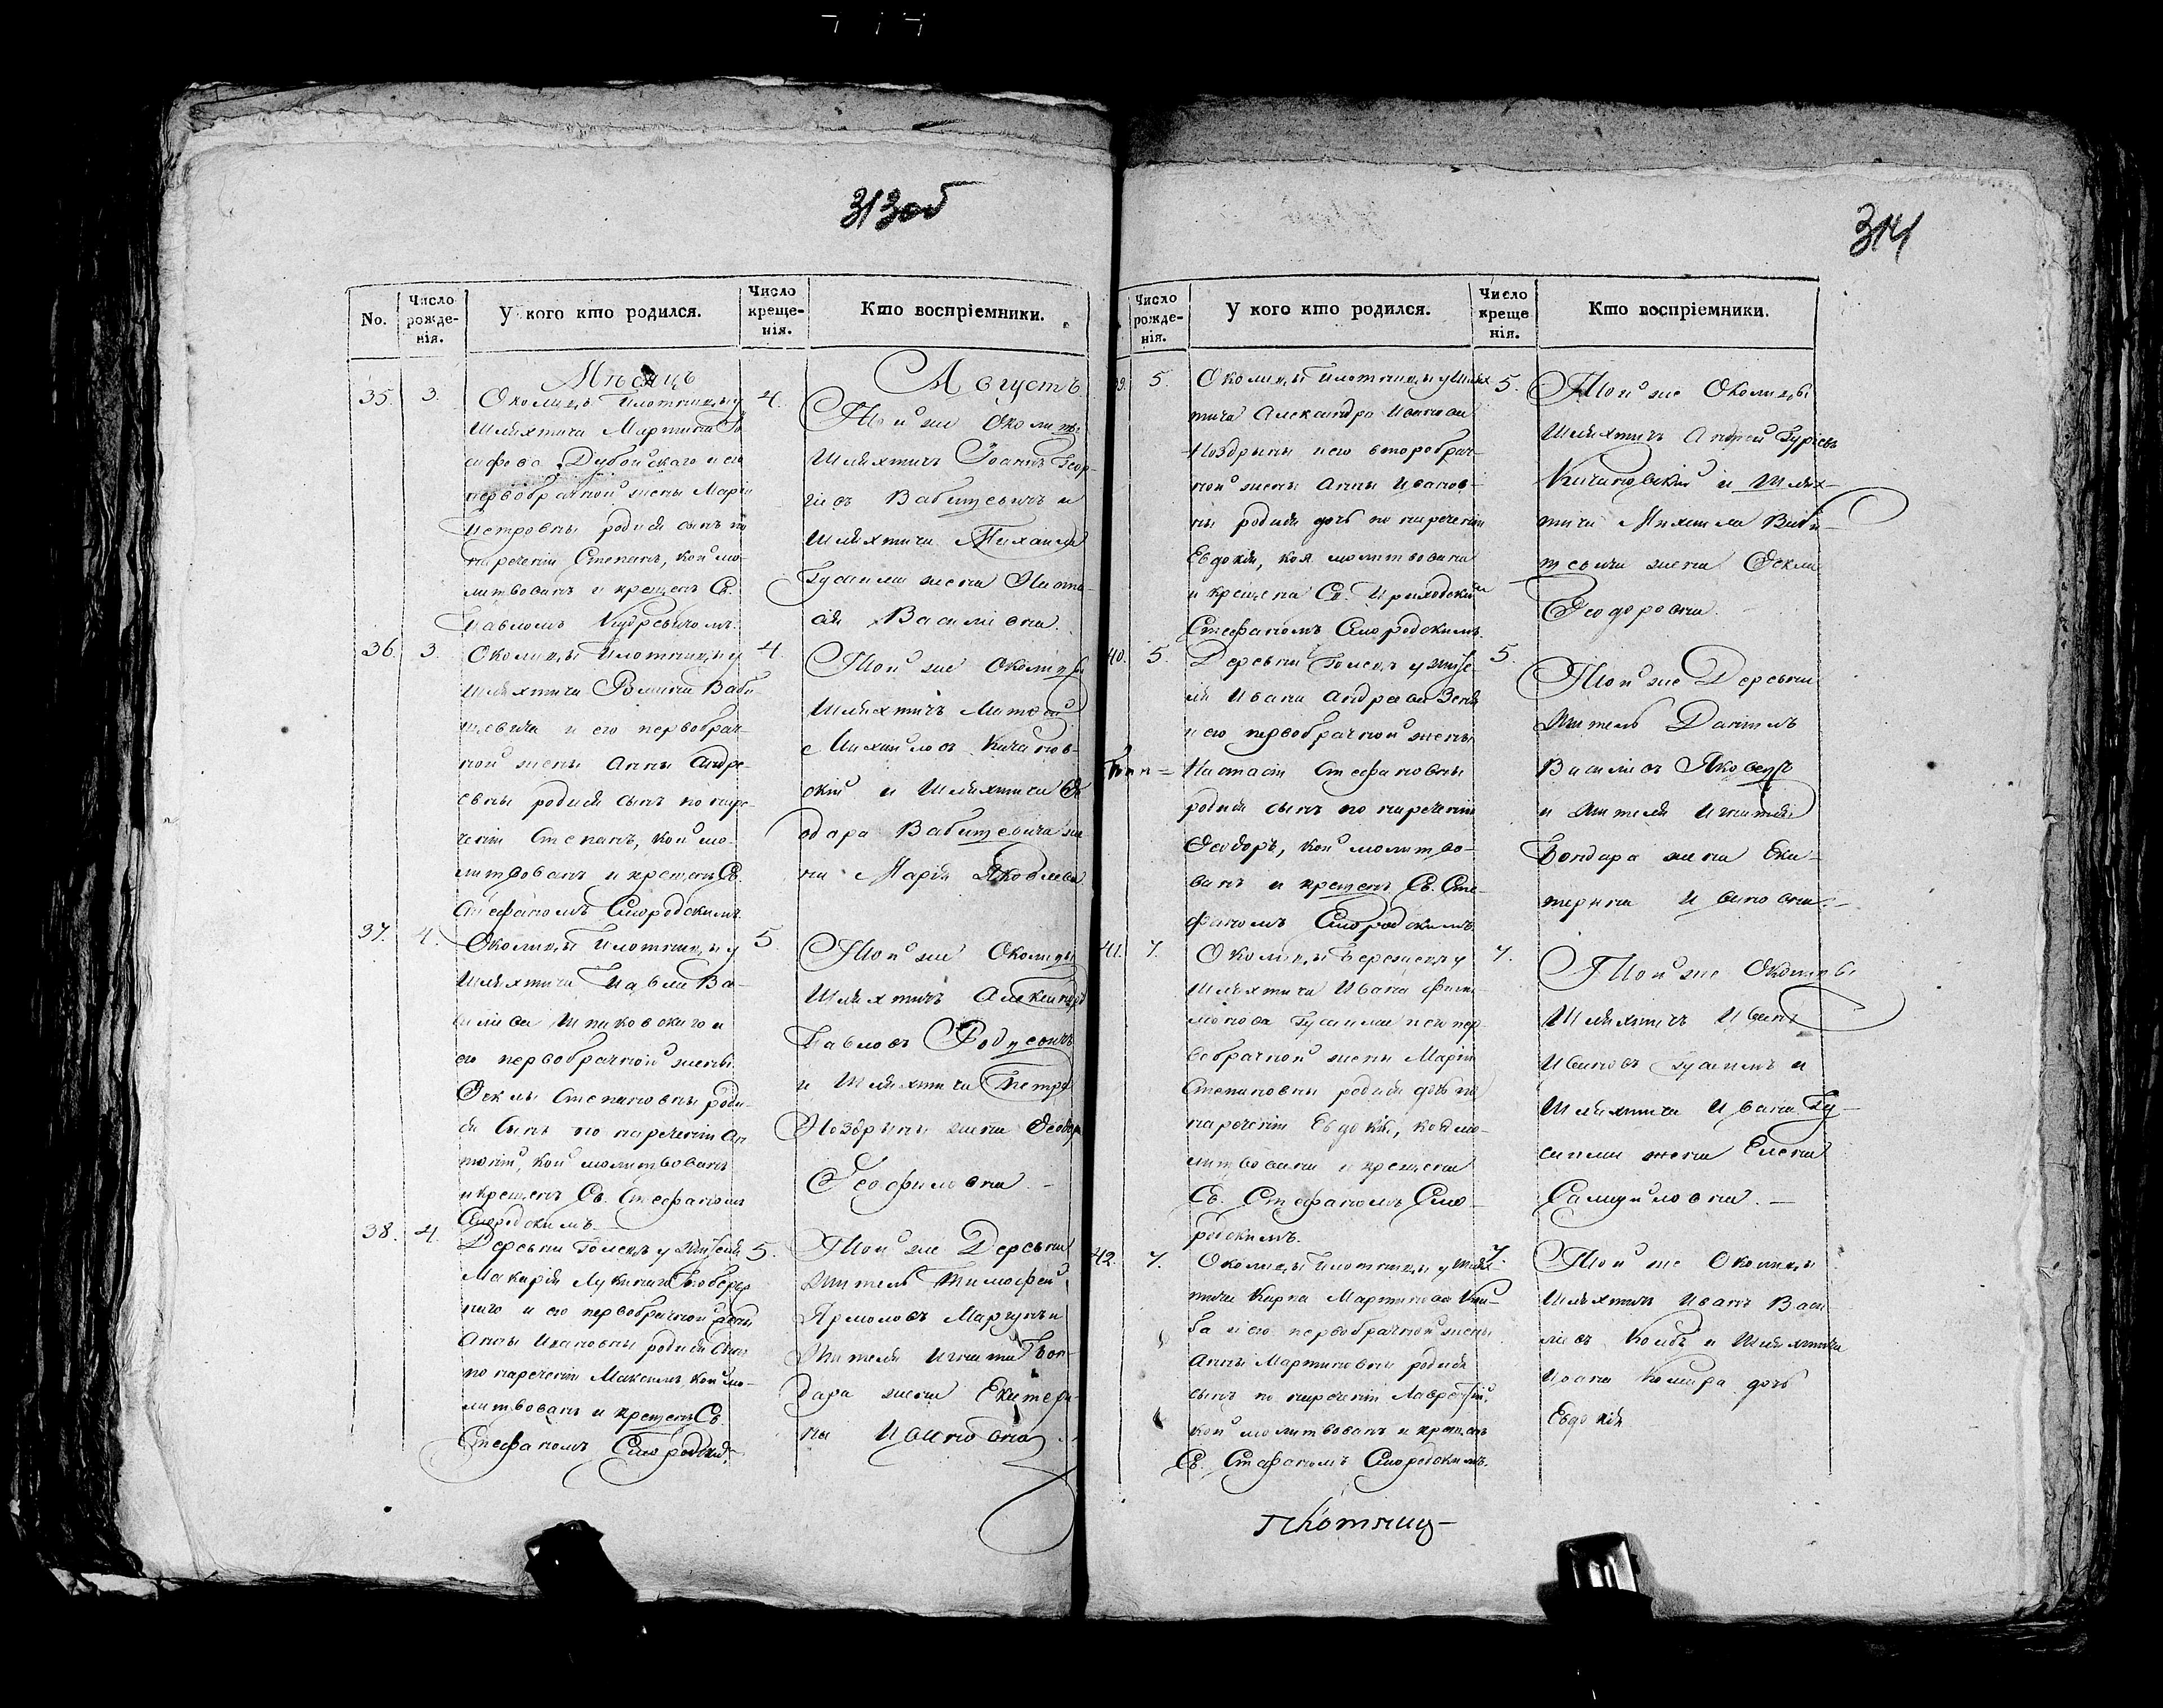 313об
No.
Число рожде-нія.
У кого кто родился.
Число креще-нія.
Кто воспріемники.
Мѣсяцъ
Августъ
35.
3.
Околицы Плотницы у
Шляхтича Мартина Іо
сифова Дубойскаго и его
первобрачной жены Маріи
Петровны родился сынъ по
наречении Степанъ, кой мо-
литвованъ и крещенъ Св.
Павломъ Кудревичомъ.
4.
Той же Околицы
Шляхтичъ Іоаннъ Геор-
гіевъ Вабищевичъ и
Шляхтича Михаила
Гусаима жена Наста-
сія Василіевна.
36.
3.
Околицы Плотницы у
Шляхтича Романа Ваби-
щевича и его первобрач-
ной жены Анны Андре-
евны родился сынъ по наре-
ченіи Степанъ, кой мо-
литвованъ и крещенъ Св.
Стефаномъ Смородскимъ.
4.
Той же Околицы
Шляхтичъ
Михайловъ Качанов-
скій и Шляхтича Фе
одора Вабищевича же
на Марія Яковлева
37.
4.
Околицы Плотницы у
Шляхтича Павла Ва-
силіева Шпаковскаго и
его первобрачной жены
Феклы Степановны роди-
ся сынъ по нареченіи Ан
тоній, кой молитвованъ
и крещенъ Св. Стефаномъ
Смородскимъ.
5.
Той же Околицы
Шляхтичъ Александръ
Павловъ Родцевичъ
и Шляхтича Петра
Ноздрины жена Феодора
Феофиловна. -
38.
4.
Деревни Голецъ у Жителя
Макарія Лукина
и его первобрачной жены
Анны Ивановны родился сынъ
по нареченіи Максимъ, кой мо-
литвованъ и крещенъ Св.
Стефаномъ Смородским.
5.
Той же Деревни
Житель Тимофей
Ярмоловъ Маргунъ и
Жителя Игната Бон-
дара жена Екатери-
на Ивановна
314
Число рожде-нія.
У кого кто родился.
Число креще нія.
Кто воспріемники.
39.
5.
Околицы Плотницы у Шлях
тича Александра Иванова
Ноздрины и его второбрач-
ной жены Анны Иванов-
ны родися дочь по нареченіи
Евдокія, коя молитвована
и крещена Св. Приходскимъ
Стефаномъ Смородскимъ.
5.
Той же Околицы
Шляхтичъ Андрей Гуріевъ
Качановскій и Шлях-
тича Михаила Ваби-
щевича жена Фекла
Феодоровна.
40.
5.
Деревни Голецъ у Жите-
ля Ивана Андреева
и его первобрачной жены
Настасіи Стефановны
родися сынъ по нареченіи
Феодоръ, кой молитво-
ванъ и крещенъ Св. Сте-
фаномъ Смородскимъ.
5.
Той же Деревни
Житель Даніилъ
Василіевъ Яковецъ
и Жителя Игнатія
Бондара жена Ека-
терина Ивановна. -
41.
7.
Околицы Бережецъ у
Шляхтича Ивана Фили-
монова Гусаима и его пер-
вобрачной жены Маріи
Степановны родися дочь по
нареченіи Евдокія, коя мо-
литвована и крещена
Св. Стефаномъ Смо-
родскимъ.
7.
Той же Околицы
Шляхтичъ Иванъ
Ивановъ Гусаимъ и
Шляхтича Ивана Гу-
саима жена Елена
Самуиловна. -
42.
7.
Околицы Плотницы у Шлях
тича Карпа Мартинова
и его первобрачной жены
Анны Мартиновны родися
сынъ по нареченіи Лаврентій,
кой молитвованъ и крещенъ
Св. Стефаномъ Смородскимъ.
7.
Той же Околицы
Шляхтичъ Иванъ Васи-
ліевъ Колбъ и Шляхтича
Ивана Комара дочь
Евдокія
Плотниц-